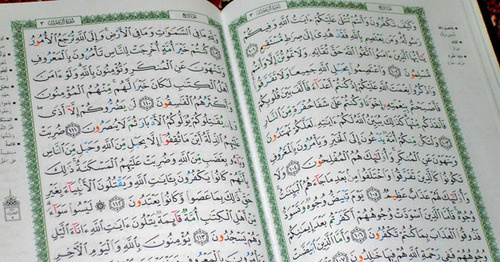 وَكَيْفَ تَكْفُرُونَ وَأَنتُمْ تُتْلَىٰ عَلَيْكُمْ ءَايَٰتُ ٱللَّهِ وَفِيكُمْ
رَسُولُهُۥ وَمَن يَعْتَصِم بِٱللَّهِ فَقَدْ هُدِىَ إِلَىٰ صِرَٰطٍ مُّسْتَقِيمٍ ١٠١
يَٰٓأَيُّهَا ٱلَّذِينَ ءَامَنُوا۟ ٱتَّقُوا۟ ٱللَّهَ حَقَّ تُقَاتِهِۦ وَلَا تَمُوتُنَّ إِلَّا وَأَنتُم
مُّسْلِمُونَ ١٠٢ وَٱعْتَصِمُوا۟ بِحَبْلِ ٱللَّهِ جَمِيعًا وَلَا تَفَرَّقُوا۟
وَٱذْكُرُوا۟ نِعْمَتَ ٱللَّهِ عَلَيْكُمْ إِذْ كُنتُمْ أَعْدَآءً فَأَلَّفَ بَيْنَ قُلُوبِكُمْ
فَأَصْبَحْتُم بِنِعْمَتِهِۦٓ إِخْوَٰنًا وَكُنتُمْ عَلَىٰ شَفَا حُفْرَةٍ مِّنَ ٱلنَّارِ
فَأَنقَذَكُم مِّنْهَا كَذَٰلِكَ يُبَيِّنُ ٱللَّهُ لَكُمْ ءَايَٰتِهِۦ لَعَلَّكُمْ تَهْتَدُونَ ١٠٣
وَلْتَكُن مِّنكُمْ أُمَّةٌ يَدْعُونَ إِلَى ٱلْخَيْرِ وَيَأْمُرُونَ بِٱلْمَعْرُوفِ
وَيَنْهَوْنَ عَنِ ٱلْمُنكَرِ وَأُو۟لَٰٓئِكَ هُمُ ٱلْمُفْلِحُونَ ١٠٤ وَلَا تَكُونُوا۟
كَٱلَّذِينَ تَفَرَّقُوا۟ وَٱخْتَلَفُوا۟ مِنۢ بَعْدِ مَا جَآءَهُمُ ٱلْبَيِّنَٰتُ
وَأُو۟لَٰٓئِكَ لَهُمْ عَذَابٌ عَظِيمٌ ١٠٥ يَوْمَ تَبْيَضُّ وُجُوهٌ وَتَسْوَدُّ وُجُوهٌ
فَأَمَّا ٱلَّذِينَ ٱسْوَدَّتْ وُجُوهُهُمْ أَكَفَرْتُم بَعْدَ إِيمَٰنِكُمْ
فَذُوقُوا۟ ٱلْعَذَابَ بِمَا كُنتُمْ تَكْفُرُونَ ١٠٦ وَأَمَّا ٱلَّذِينَ ٱبْيَضَّتْ
وُجُوهُهُمْ فَفِى رَحْمَةِ ٱللَّهِ هُمْ فِيهَا خَٰلِدُونَ
وَلِلَّهِ مَا فِى ٱلسَّمَٰوَٰتِ وَمَا فِى ٱلْأَرْضِ وَإِلَى ٱللَّهِ تُرْجَعُ ٱلْأُمُورُ
١٠٩ كُنتُمْ خَيْرَ أُمَّةٍ أُخْرِجَتْ لِلنَّاسِ تَأْمُرُونَ بِٱلْمَعْرُوفِ
وَتَنْهَوْنَ عَنِ ٱلْمُنكَرِ وَتُؤْمِنُونَ بِٱللَّهِ وَلَوْ ءَامَنَ
أَهْلُ ٱلْكِتَٰبِ لَكَانَ خَيْرًا لَّهُم مِّنْهُمُ ٱلْمُؤْمِنُونَ
وَأَكْثَرُهُمُ ٱلْفَٰسِقُونَ ١١٠ لَن يَضُرُّوكُمْ إِلَّآ أَذًى
وَإِن يُقَٰتِلُوكُمْ يُوَلُّوكُمُ ٱلْأَدْبَارَ ثُمَّ لَا يُنصَرُونَ ١١١ ضُرِبَتْ
عَلَيْهِمُ ٱلذِّلَّةُ أَيْنَ مَا ثُقِفُوٓا۟ إِلَّا بِحَبْلٍ مِّنَ ٱللَّهِ وَحَبْلٍ مِّنَ ٱلنَّاسِ
وَبَآءُو بِغَضَبٍ مِّنَ ٱللَّهِ وَضُرِبَتْ عَلَيْهِمُ ٱلْمَسْكَنَةُ ذَٰلِكَ
بِأَنَّهُمْ كَانُوا۟ يَكْفُرُونَ بِـَٔايَٰتِ ٱللَّهِ وَيَقْتُلُونَ ٱلْأَنۢبِيَآءَ بِغَيْرِ
حَقٍّ ذَٰلِكَ بِمَا عَصَوا۟ وَّكَانُوا۟ يَعْتَدُونَ ١١٢ لَيْسُوا۟ سَوَآءً
مِّنْ أَهْلِ ٱلْكِتَٰبِ أُمَّةٌ قَآئِمَةٌ يَتْلُونَ ءَايَٰتِ ٱللَّهِ ءَانَآءَ ٱلَّيْلِ
وَهُمْ يَسْجُدُونَ ١١٣ يُؤْمِنُونَ بِٱللَّهِ وَٱلْيَوْمِ ٱلْءَاخِرِ